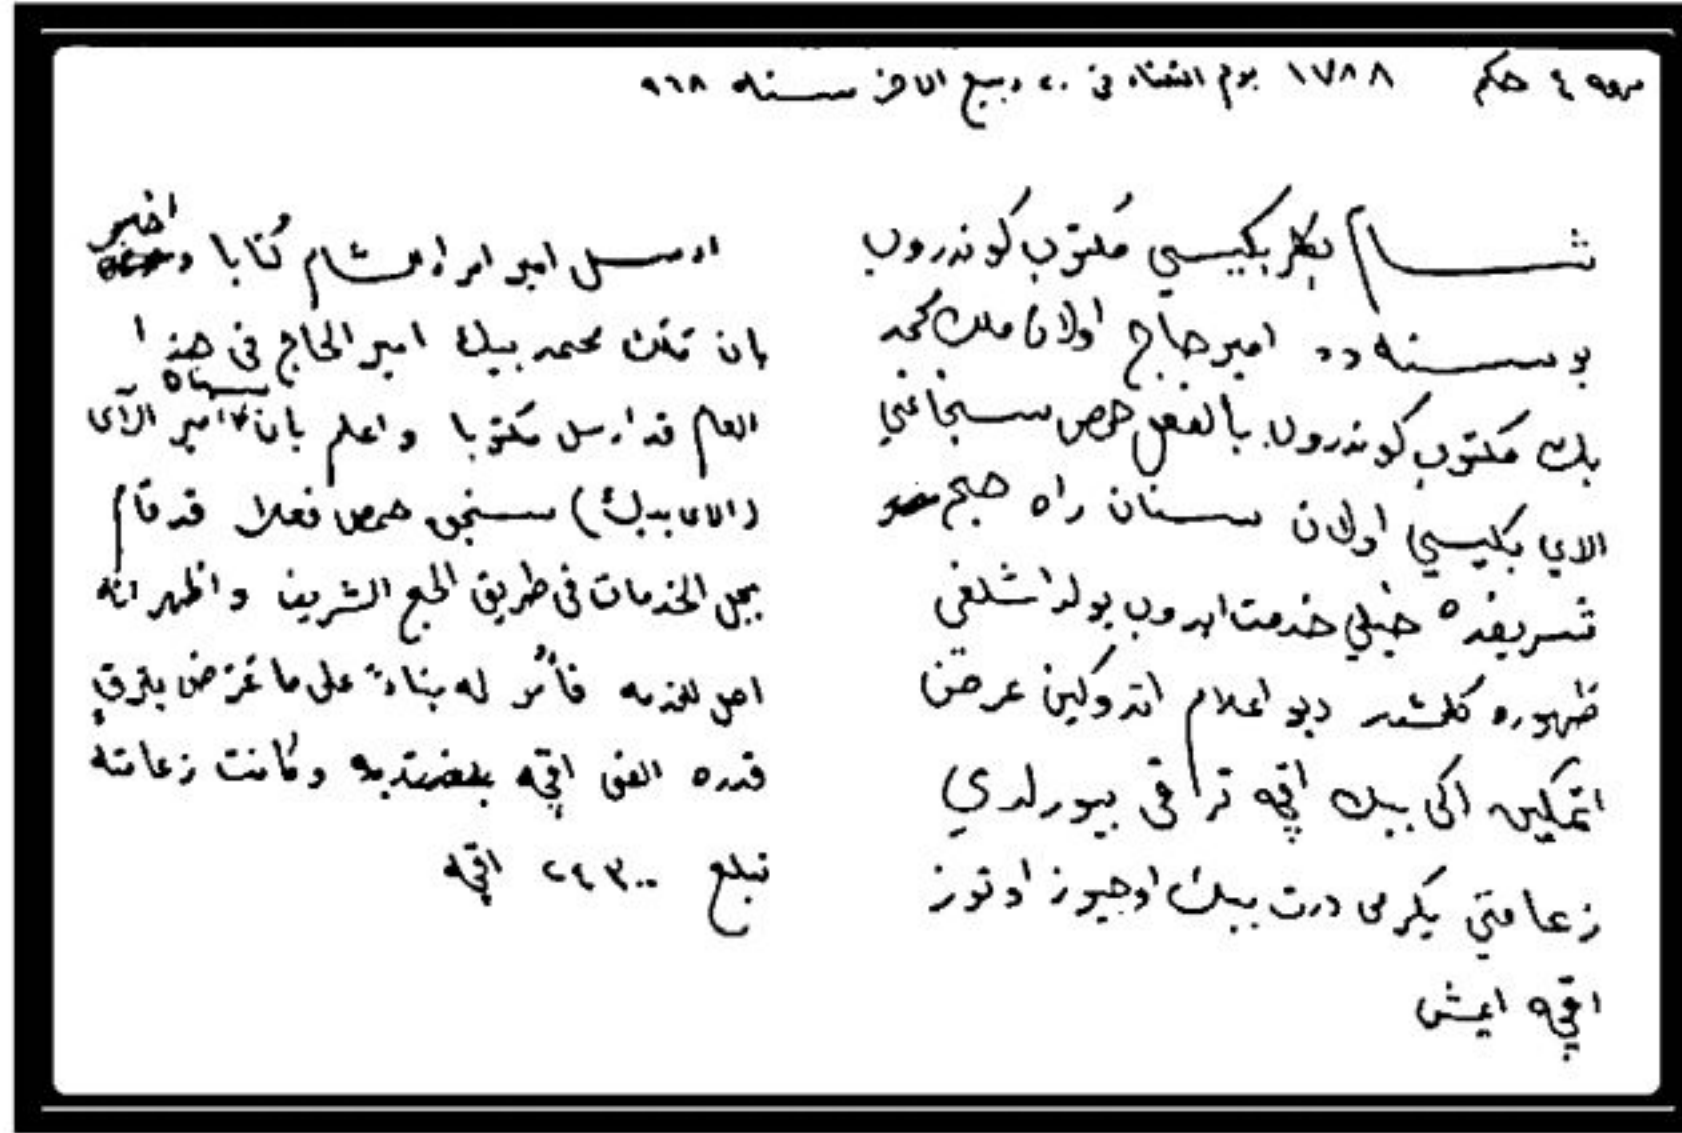 حكم ١٧٨٨ يوم الثلثاء في ٢٠ ربيع الاخر سنه ٩٦٨
شام بكلربكيسي مكتوب كوندروب
بو سنه ده امير حاج اولان ملك محمد
بك مكتوب كوندروب بالفعل حمص سنجاغي
الاي بكيسي اولان سنان راه حج
شريفده خيلي خدمت ايدوب يولداشلغي
ظهوره كلمشدر ديو اعلام اتدوكين عرض
اتمكين اكى بيك اقچه ترقى بيورلدي
زعامتي يكرمى درت بيك اوچيوز اوتوز
اقچه ايمش
ارسل امير امراء الشام كتابا و اخبر
بان ملك محمد بيك امير الحاج في هذا
العام قد ارسل مكتوبا واعلم بان سنان امير الآلاى
(الاى بيك) سنجق حمص فعلا قد قام
بجل الخدمات في طريق الحج الشريف واظهر انه
اهل للخدمه فأمر له بناءً على ما عرض بترقٍ
قدره الفى اقچه وكانت زعامته
تبلغ ٢٤٣٠٠ اقچه